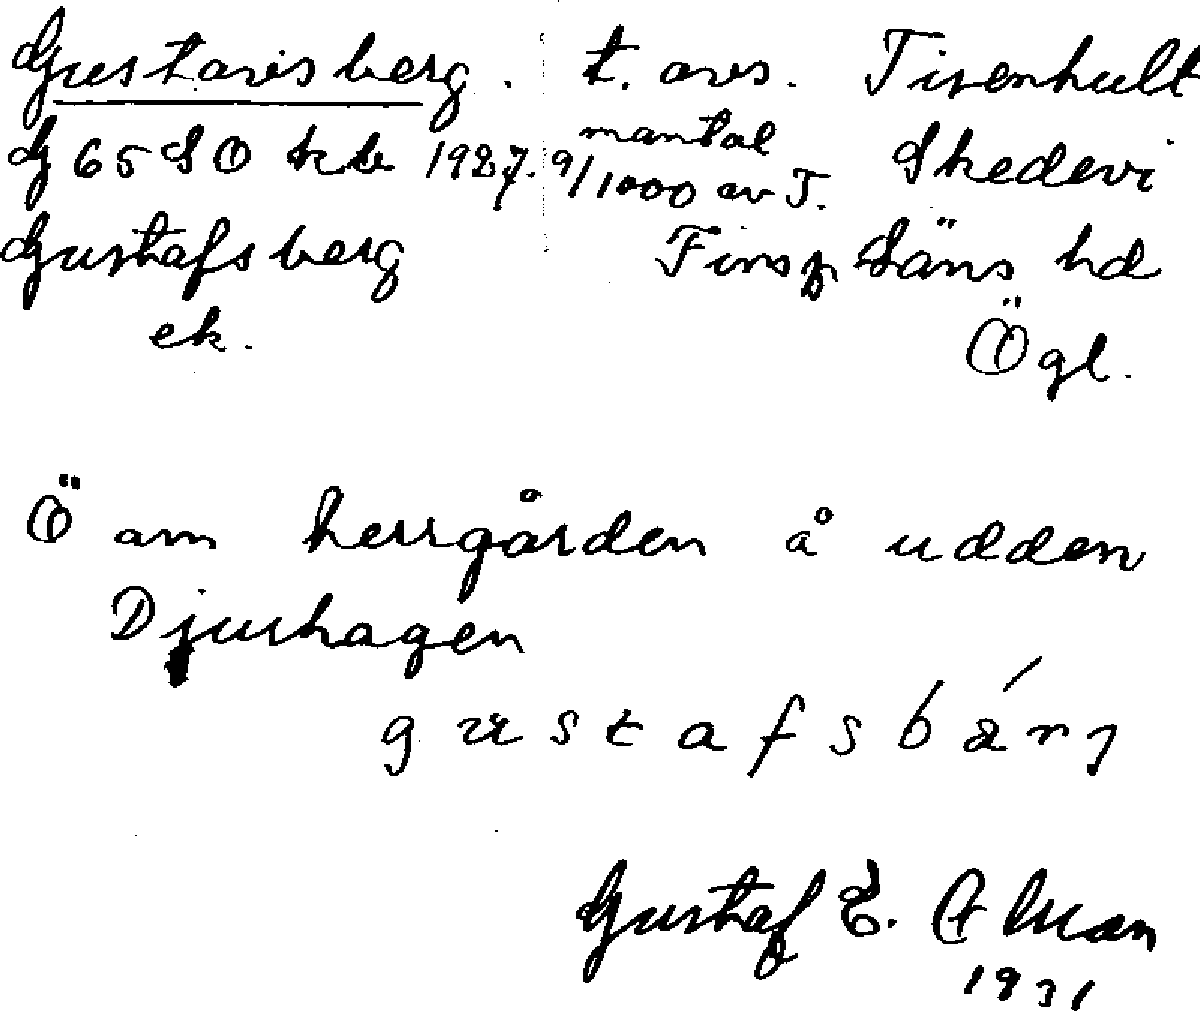 Gustavsberg. t. avs. Tisenhult
G 65 SO kb 1927. 9/1000 mantal av T. Skedevi
Gustafsberg Finsp Läns hd
ek. Ögl.
Ö om herrgården å udden
Djurhagen
gustafsbärj
Gustaf E. Alman
1931